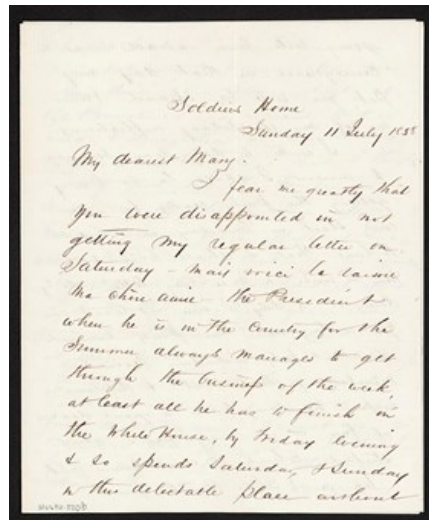 Soldiers Home
Sunday 11 July 1858
My dearest Mary.
I fear me greatly that
you were disappointed in not
getting my regular letter on
Saturday - mais voici la raison
ma chère amie - the President
when he is in the Country for the
Summer always manages to get
through the business of the week,
at least all he has to finish in
the White House, by Friday evening
& so spends Saturday, & Sunday
in this delectable place without